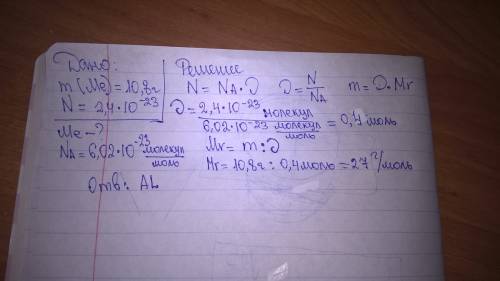 Дано:
m(Me) = 10,8г
N = 2,4·10⁻²³
Me - ?
NA = 6,02·10⁻²³ молекул/моль
Решение
N = NA·∂   ∂ = N/NA   m = ∂·Mr
∂ = 2,4·10⁻²³ молекул / 6,02·10⁻²³ молекул/моль = 0,4 моль
Mr = m : ∂
Mr = 10,8г : 0,4моль = 27 г/моль
Отв: AL